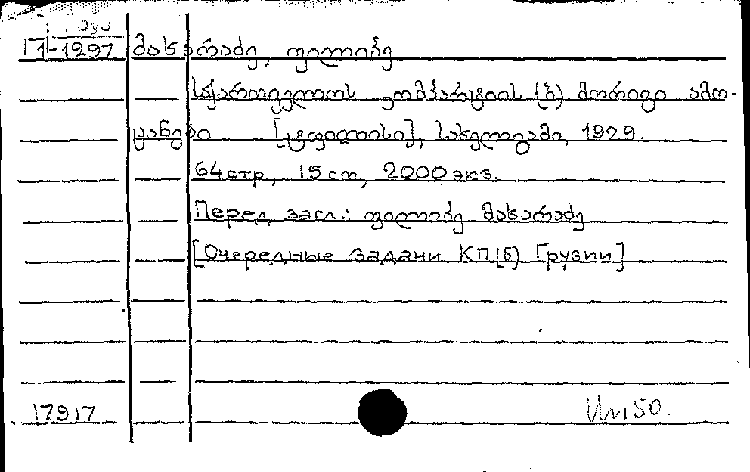 П-1297 მახარაძე, ფილიპე
საქართველოს კომპარტიის (ბ) მორიგი ამო-
ცანები [ტფილისი], სახელგამი, 1929.
64 стр, 15 см, 2000 экз.
Перед загл.: ფილიპე მახარაძე
[Очередные задачи КП(б) Грузии]
17917